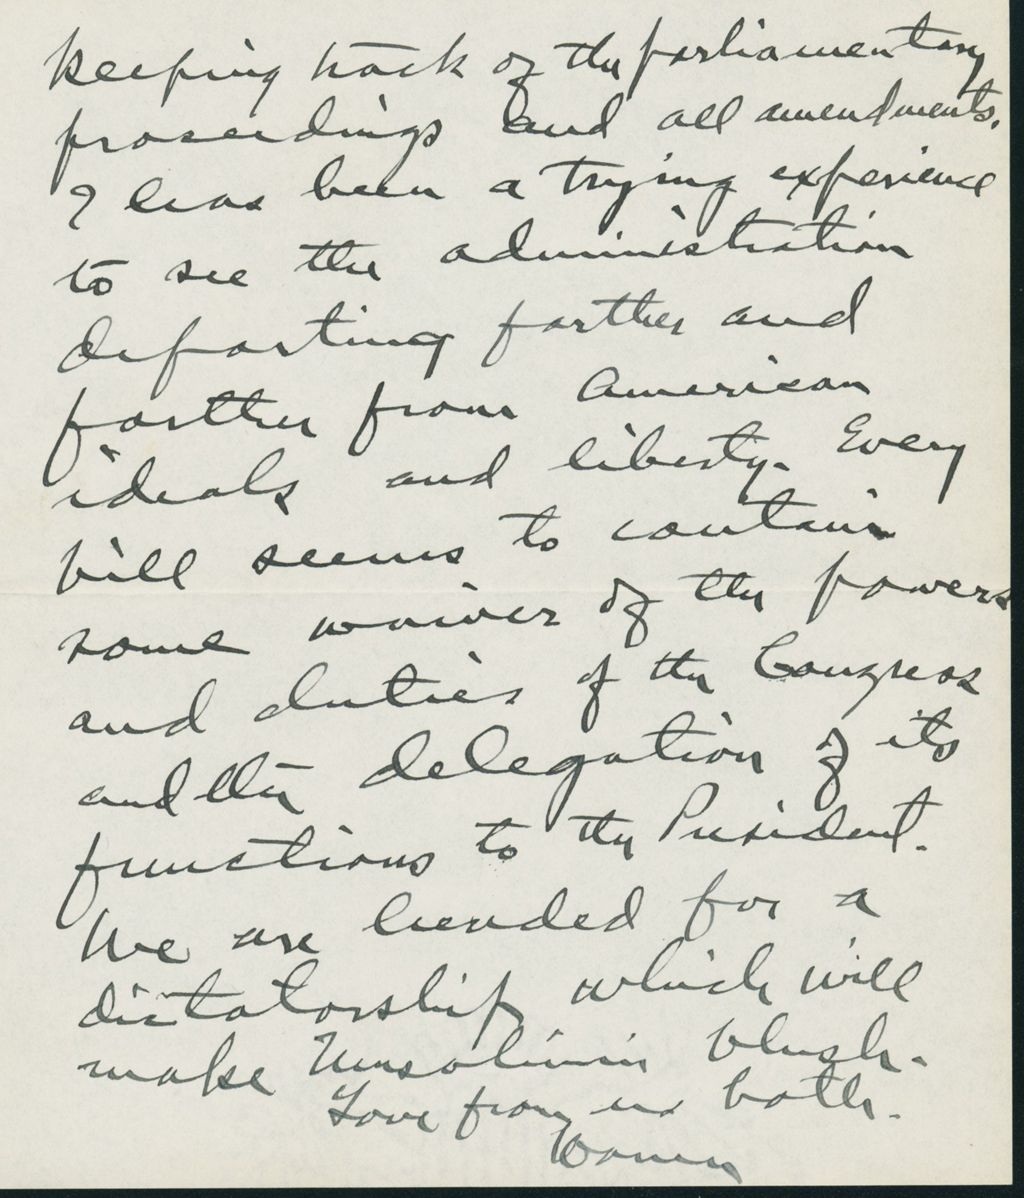 keeping track of the parliamentary
proceedings and all amendments.
I has been a trying experience
to see the administration
departing farther and
farther from American
ideals and liberty. Every
bill seems to contain
some waiver of the powers
and duties of the Congress
and the delegation of its
functions to the President.
We are headed for a
dictatorship which will
make Mussolini blush.
Love from us both.
Warren